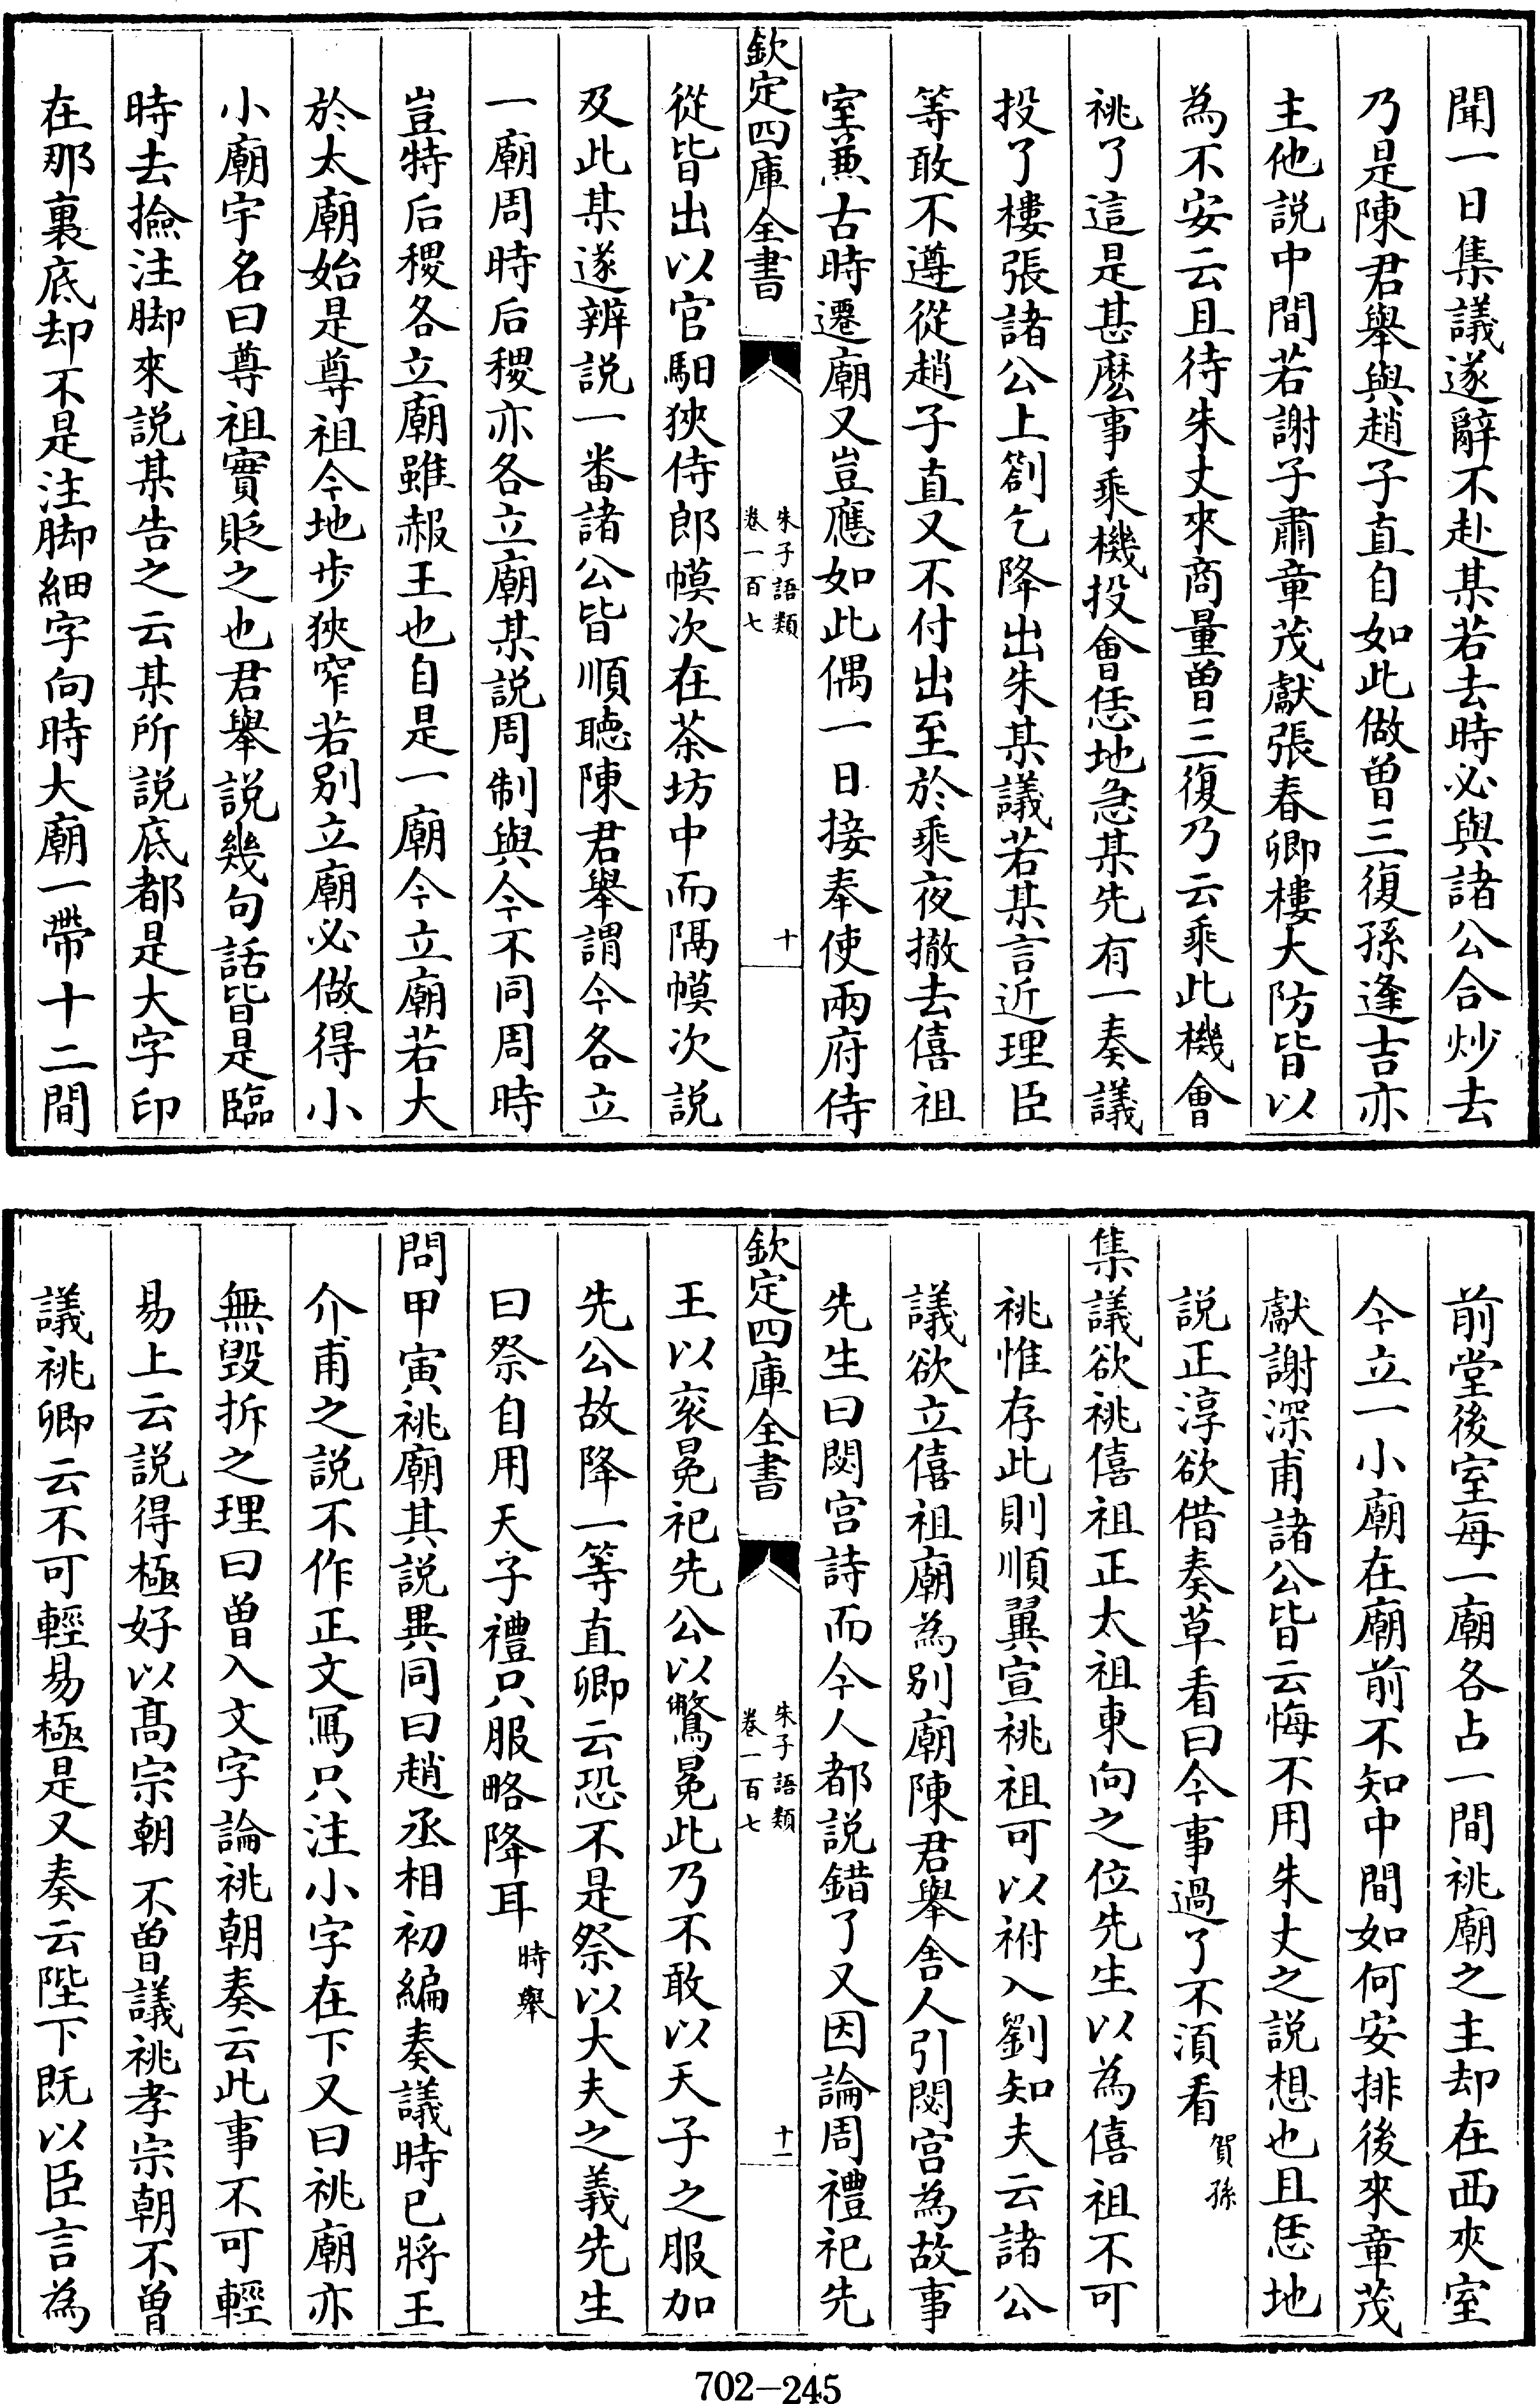 聞一日集議遂辭不赴某若去時必與諸公合炒去
乃是陳君舉與趙子直自如此做曾三復孫逢吉亦
主他説中間若謝子肅章茂獻張春卿樓大防皆以
為不安云且待朱丈來商量曾三復乃云乘此機會
祧了這是甚麽事乘機投會恁地急某先有一奏議
投了樓張諸公上劄乞降出朱某議若某言近理臣
等敢不遵從趙子直又不付出至於乘夜撤去僖祖
室兼古時遷廟又豈應如此偶一日接奉使兩府侍
欽定四庫全書
朱子語類
卷一百七
十
從皆出以官馹狹侍郎幙次在茶坊中而隔幙次説
及此某遂辨説一番諸公皆順聽陳君舉謂今各立
一廟周時后稷亦各立廟某説周制與今不同周時
豈特后稷各立廟雖赧王也自是一廟今立廟若大
於太廟始是尊祖今地步狹窄若别立廟必做得小
小廟宇名曰尊祖實貶之也君舉説幾句話皆是臨
時去撿注脚來説某告之云某所説底都是大字印
在那裏底却不是注脚細字向時大廟一帶十二間
前堂後室每一廟各占一間祧廟之主却在西夾室
今立一小廟在廟前不知中間如何安排後來章茂
獻謝深甫諸公皆云悔不用朱丈之説想也且恁地
説正淳欲借奏草看曰今事過了不湏看賀孫
集議欲祧僖祖正太祖東向之位先生以為僖祖不可
祧惟存此則順翼宣祧祖可以祔入劉知夫云諸公
議欲立僖祖廟為别廟陳君舉舎人引閟宫為故事
先生曰閟宫詩而今人都説錯了又因論周禮祀先
欽定四庫全書
朱子語類
卷一百七
十一
王以衮冕祀先公以鷩冕此乃不敢以天子之服加
先公故降一等直卿云恐不是祭以大夫之義先生
曰祭自用天子禮只服略降耳時舉
問甲寅祧廟其説異同曰趙丞相初編奏議時已將王
介甫之説不作正文寫只注小字在下又曰祧廟亦
無毁拆之理曰曽入文字論祧朝奏云此事不可輕
易上云説得極好以髙宗朝不曽議祧孝宗朝不曽
議祧卿云不可輕易極是又奏云陛下既以臣言為
702—245